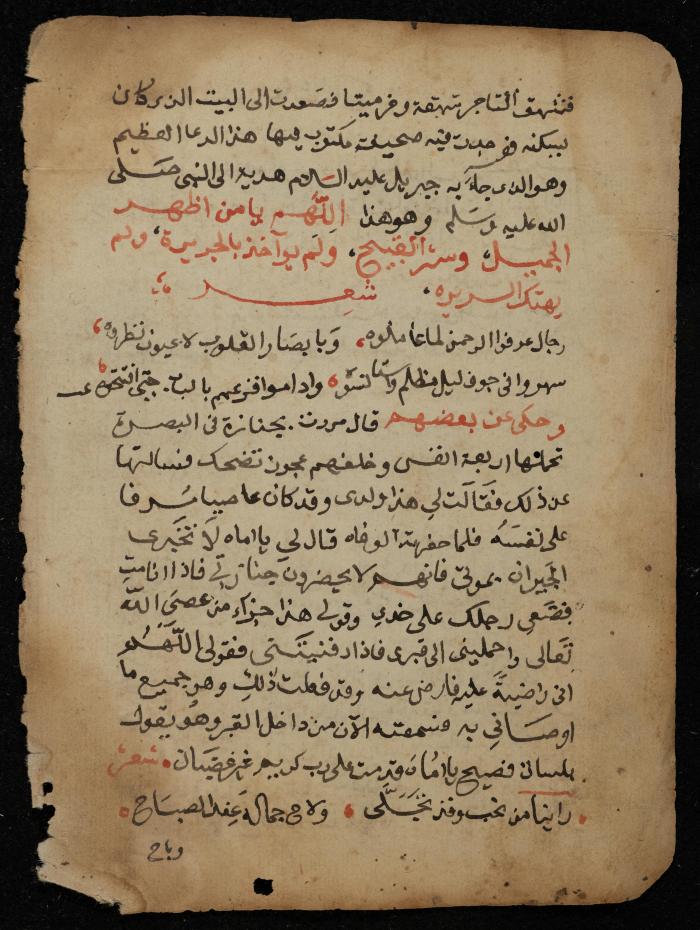 فشهق التاجر شهقة وخر ميتا فصعدت الى البيت الذى كان
يسكنه فوجدت فيه صحيفة مكتوب فيها هذا الدعا العظيم
وهو الذى جآء به جبريل عليه السلام هدية الى النبى صلى
الله عليه وسلم وهو هذا اللّهم يا من اظهر
الجميل، وستر القبيح، ولم يوآخذ بالجريرة، ولم
يهتك السريره، شعر
رجال عرفوا الرحمن لما عاملوه، وبابصار القلوب لا عيون نظروه،
سهروا فى جوف ليل مظلم واداموا قرعهم بالباب حتى
وحكى عن بعضهم قال مررت بجنازة فى البصرة
تحملها اربعة انفس وخلفهم عجوز تضحك فسالتها
عن ذلك فقالت لى هذا ولدى وقد كان عاصيا مسرفا
على نفسه فلما حضرته الوفاه قال لى يا اماه لا تخبرى
الجيران بموتى فانهم لا يحضرون جنازتى فاذا انا مت
فضعى رجلك على خدى وقولى هذا جزاء من عصى الله
تعالى واحملينى الى قبرى فاذا دفنيتنى فقولى اللّهم
انى راضية عليه فارض عنه وقد فعلت ذلك وهو جميع ما
اوصانى به فسمعته الآن من داخل القبر وهو يقول
بلسان فصيح يا اماه قدمت على رب كريم غير غضبان، شعر
راينا من نحب وقد تجلّى، ولاح جماله عند الصباح،
وباح